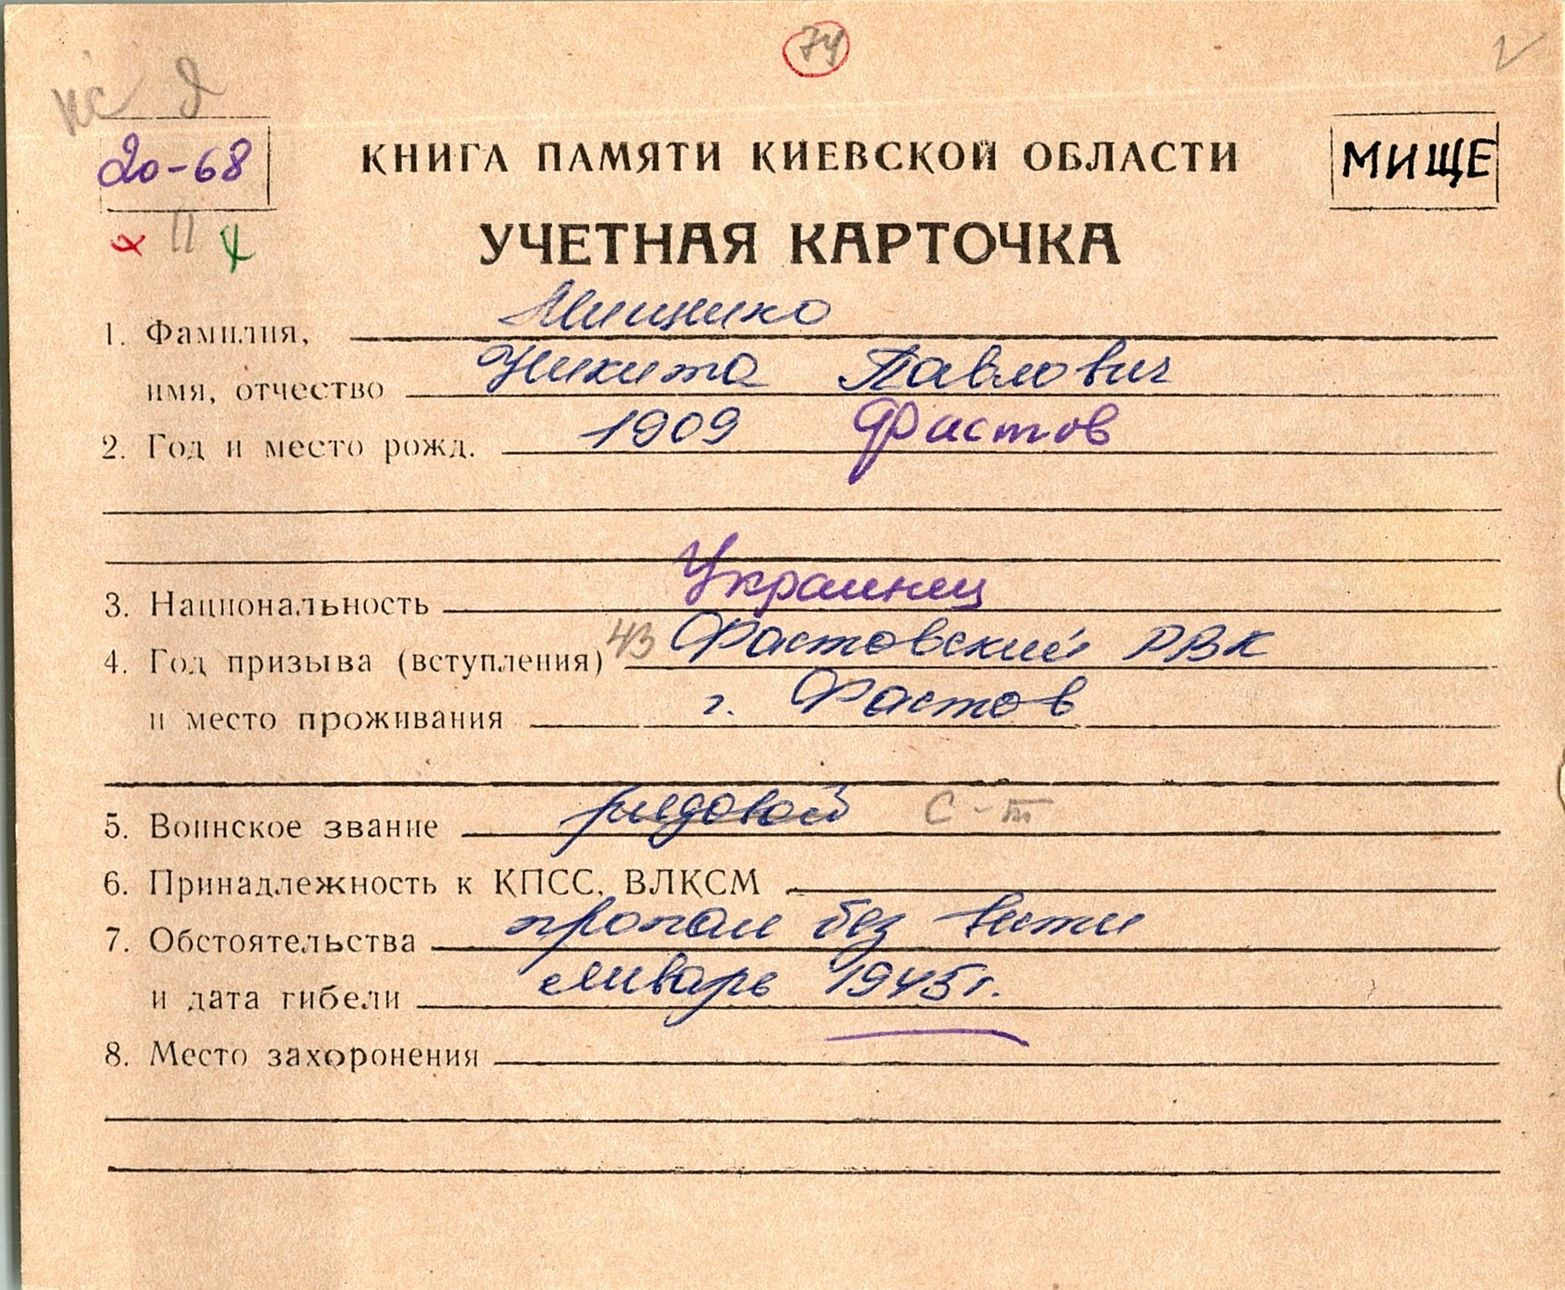 74
20-68
КНИГА ПАМЯТИ КИЕВСКОЙ ОБЛАСТИ
МИЩЕ
УЧЕТНАЯ КАРТОЧКА
1. Фамилия, Мищенко
имя, отчество Никита Павлович
2. Год и место рожд. 1909 Фастов
3. Национальность Украинец
4. Год призыва (вступления) 43 Фастовский РВК
и место проживания г. Фастов
5. Воинское звание рядовой с-т
6. Принадлежность к КПСС, ВЛКСМ
7. Обстоятельства пропал без вести
и дата гибели январь 1945 г.
8. Место захоронения